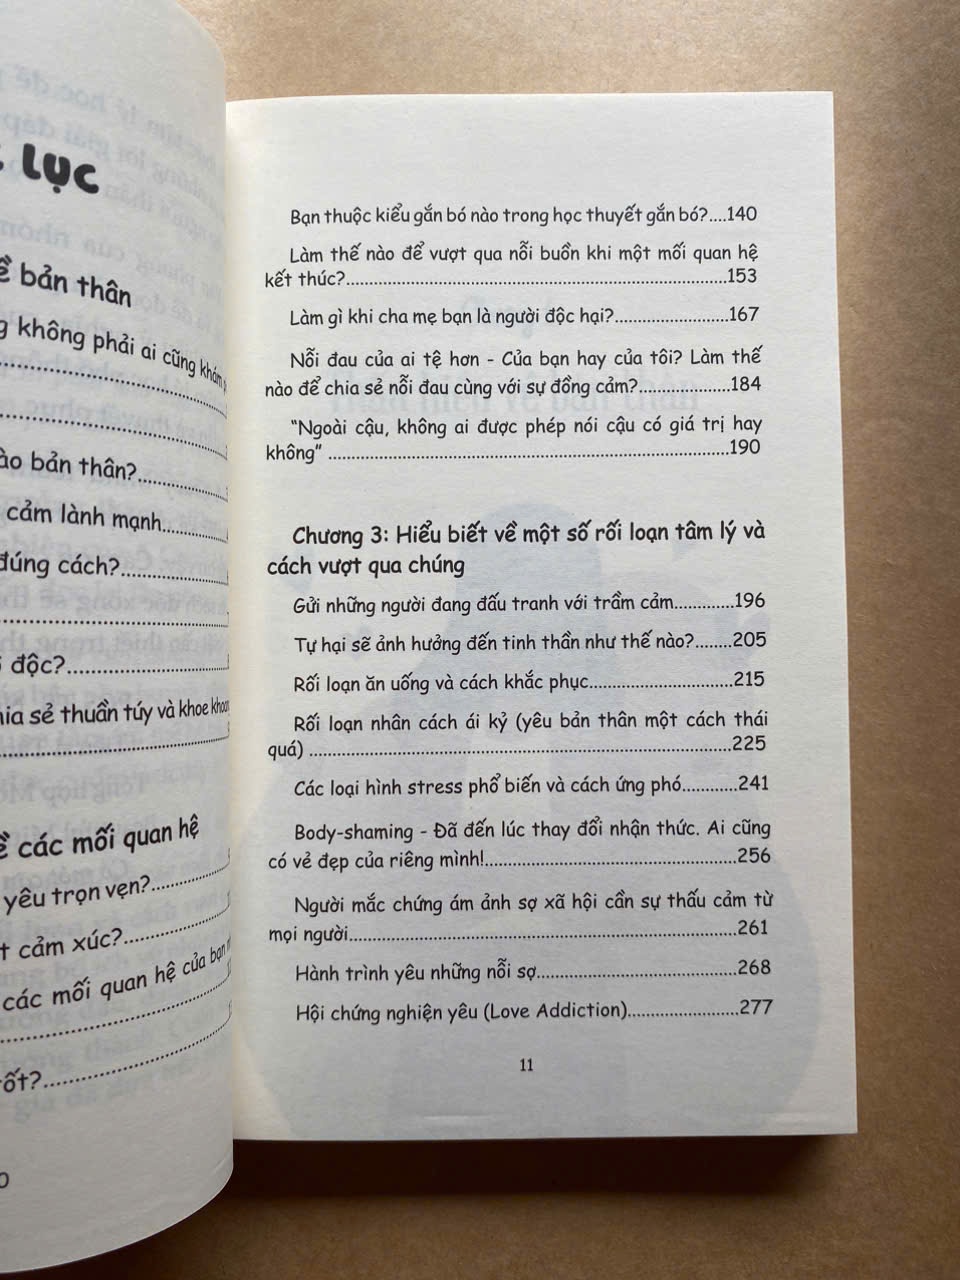 lục
bản thân
không phải ai cũng khám
bản thân?
cảm lành mạnh
đúng cách?
độc?
sẻ thuần túy và khoe khoang
các mối quan hệ
yêu trọn vẹn?
cảm xúc?
các mối quan hệ của bạn
Bạn thuộc kiểu gắn bó nào trong học thuyết gắn bó?....140
Làm thế nào để vượt qua nỗi buồn khi một mối quan hệ
kết thúc?....153
Làm gì khi cha mẹ bạn là người độc hại?....167
Nỗi đau của ai tệ hơn - Của bạn hay của tôi? Làm thế
nào để chia sẻ nỗi đau cùng với sự đồng cảm?....184
“Ngoài cậu, không ai được phép nói cậu có giá trị hay
không” ....190
Chương 3: Hiểu biết về một số rối loạn tâm lý và
cách vượt qua chúng
Gửi những người đang đấu tranh với trầm cảm....196
Tự hại sẽ ảnh hưởng đến tinh thần như thế nào?....205
Rối loạn ăn uống và cách khắc phục....215
Rối loạn nhân cách ái kỷ (yêu bản thân một cách thái
quá) ....225
Các loại hình stress phổ biến và cách ứng phó....241
Body-shaming - Đã đến lúc thay đổi nhận thức. Ai cũng
có vẻ đẹp của riêng mình!....256
Người mắc chứng ám ảnh sợ xã hội cần sự thấu cảm từ
mọi người....261
Hành trình yêu những nỗi sợ....268
Hội chứng nghiện yêu (Love Addiction)....277
11